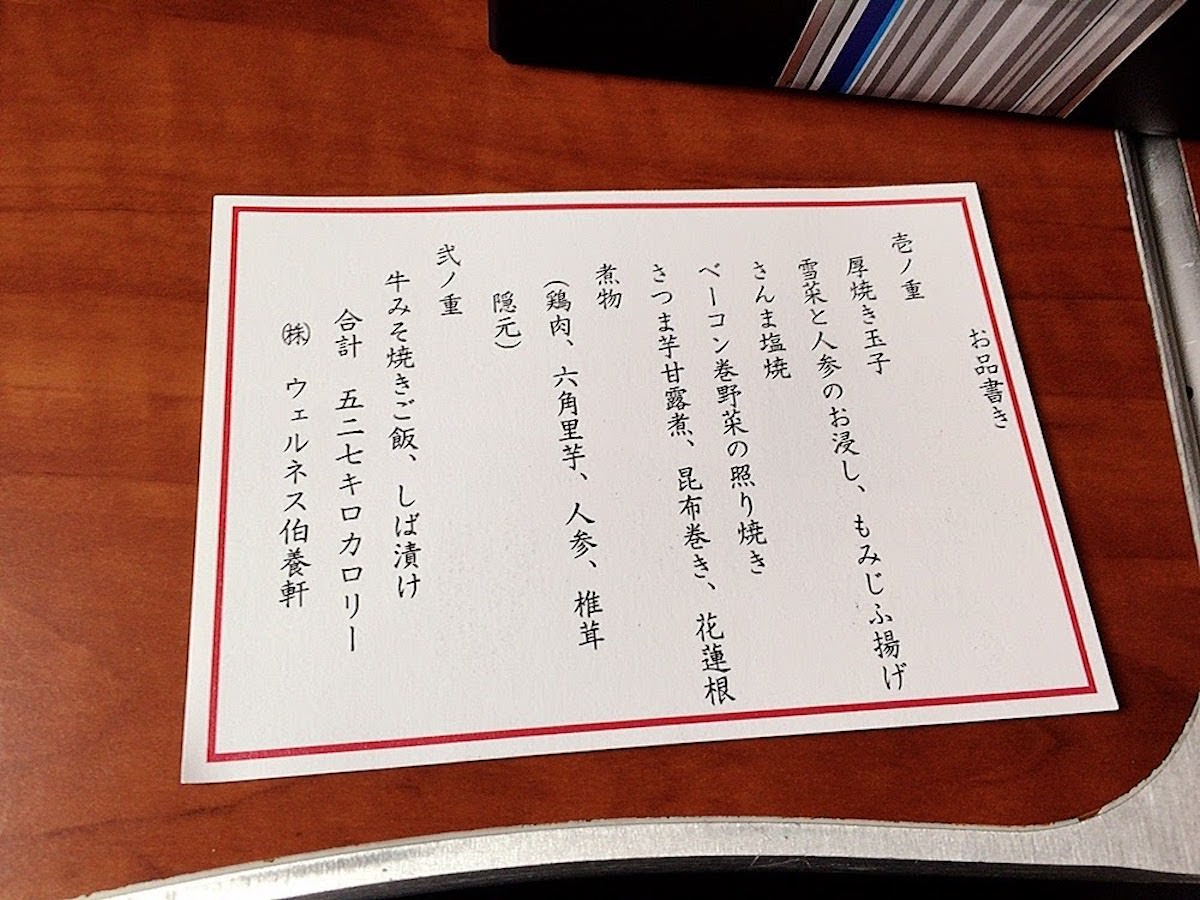 お品書き
壱ノ重
厚焼き玉子
雪菜と人参のお浸し、もみじふ揚げ
さんま塩焼
ベーコン巻野菜の照り焼き
さつま芋甘露煮、昆布巻き、花蓮根
煮物
(鶏肉、六角里芋、人参、椎茸
隠元)
弐ノ重
牛みそ焼きご飯、しば漬け
合計 五二七キロカロリー
㈱ ウェルネス伯養軒